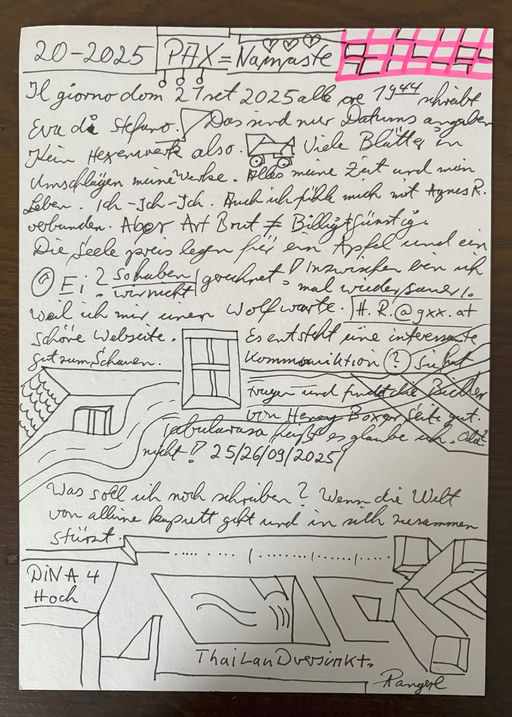 20-2025 PAX = Namaste
Il giorno dom 21 set 2025 alle ore 19 44 schreibt
Eva di Stefano. Das sind nur Datums angaben
Kein Hexenwerk also. Viele Blätter in
Umschlägen meine Werke. Alles meine Zeit und mein
Leben. Ich-Ich-Ich. Auch ich fühle mich mit Agnes R.
verbunden. Aber Art Brut ≠ Billig + Günstig.
Die Seele preis legen für ein Apfel und ein
Ei? So haben wir nicht gerechnet! Inzwischen bin ich
mal wieder sauer!
weil ich mir einen Wolf warte. H.R.@gxx.at
schöne Webseite. Es entsteht eine interessante
gut zum Schauen. Kommuniktion ? Sie hat
Fragen und findet die Bücher
von Henry Boxer Seite gut.
Tabularasa heißt es glaube ich. Oder
nicht!? 25/26/09/2025/
Was soll ich noch schreiben? Wenn die Welt
von alleine kaputt geht und in sich zusammen
stürzt.
DiN A 4
Hoch
ThaiLanDversinkt.